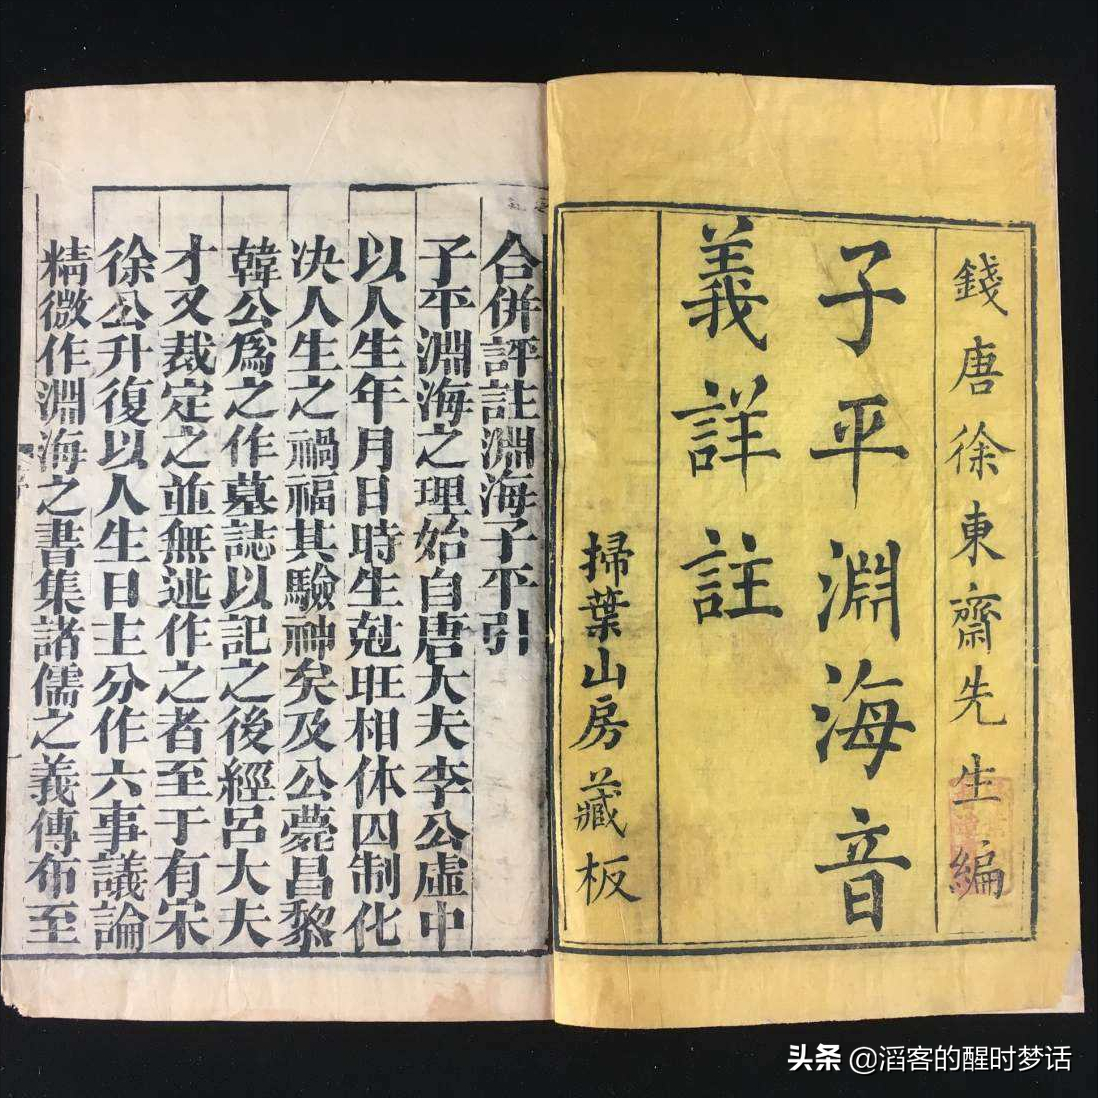 錢唐徐東齋先生編
子平淵海音
義詳註
掃葉山房藏板
合併評註淵海子平引
子平淵海之理始自唐大夫李公虛中
以人生年月日時生尅旺相休囚制化
决人生之禍福其驗神矣及公薨昌黎
韓公爲之作墓誌以記之後經呂大夫
才又裁定之並無述作之者至于有宋
徐公升復以人生日主分作六事議論
精微作淵海之書集諸儒之義傳布至
头条 @滔客的醒时梦话